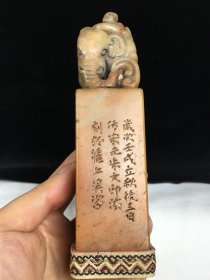 歲次壬戌立秋後三日
仿宋元朱文印法
刻於滬上